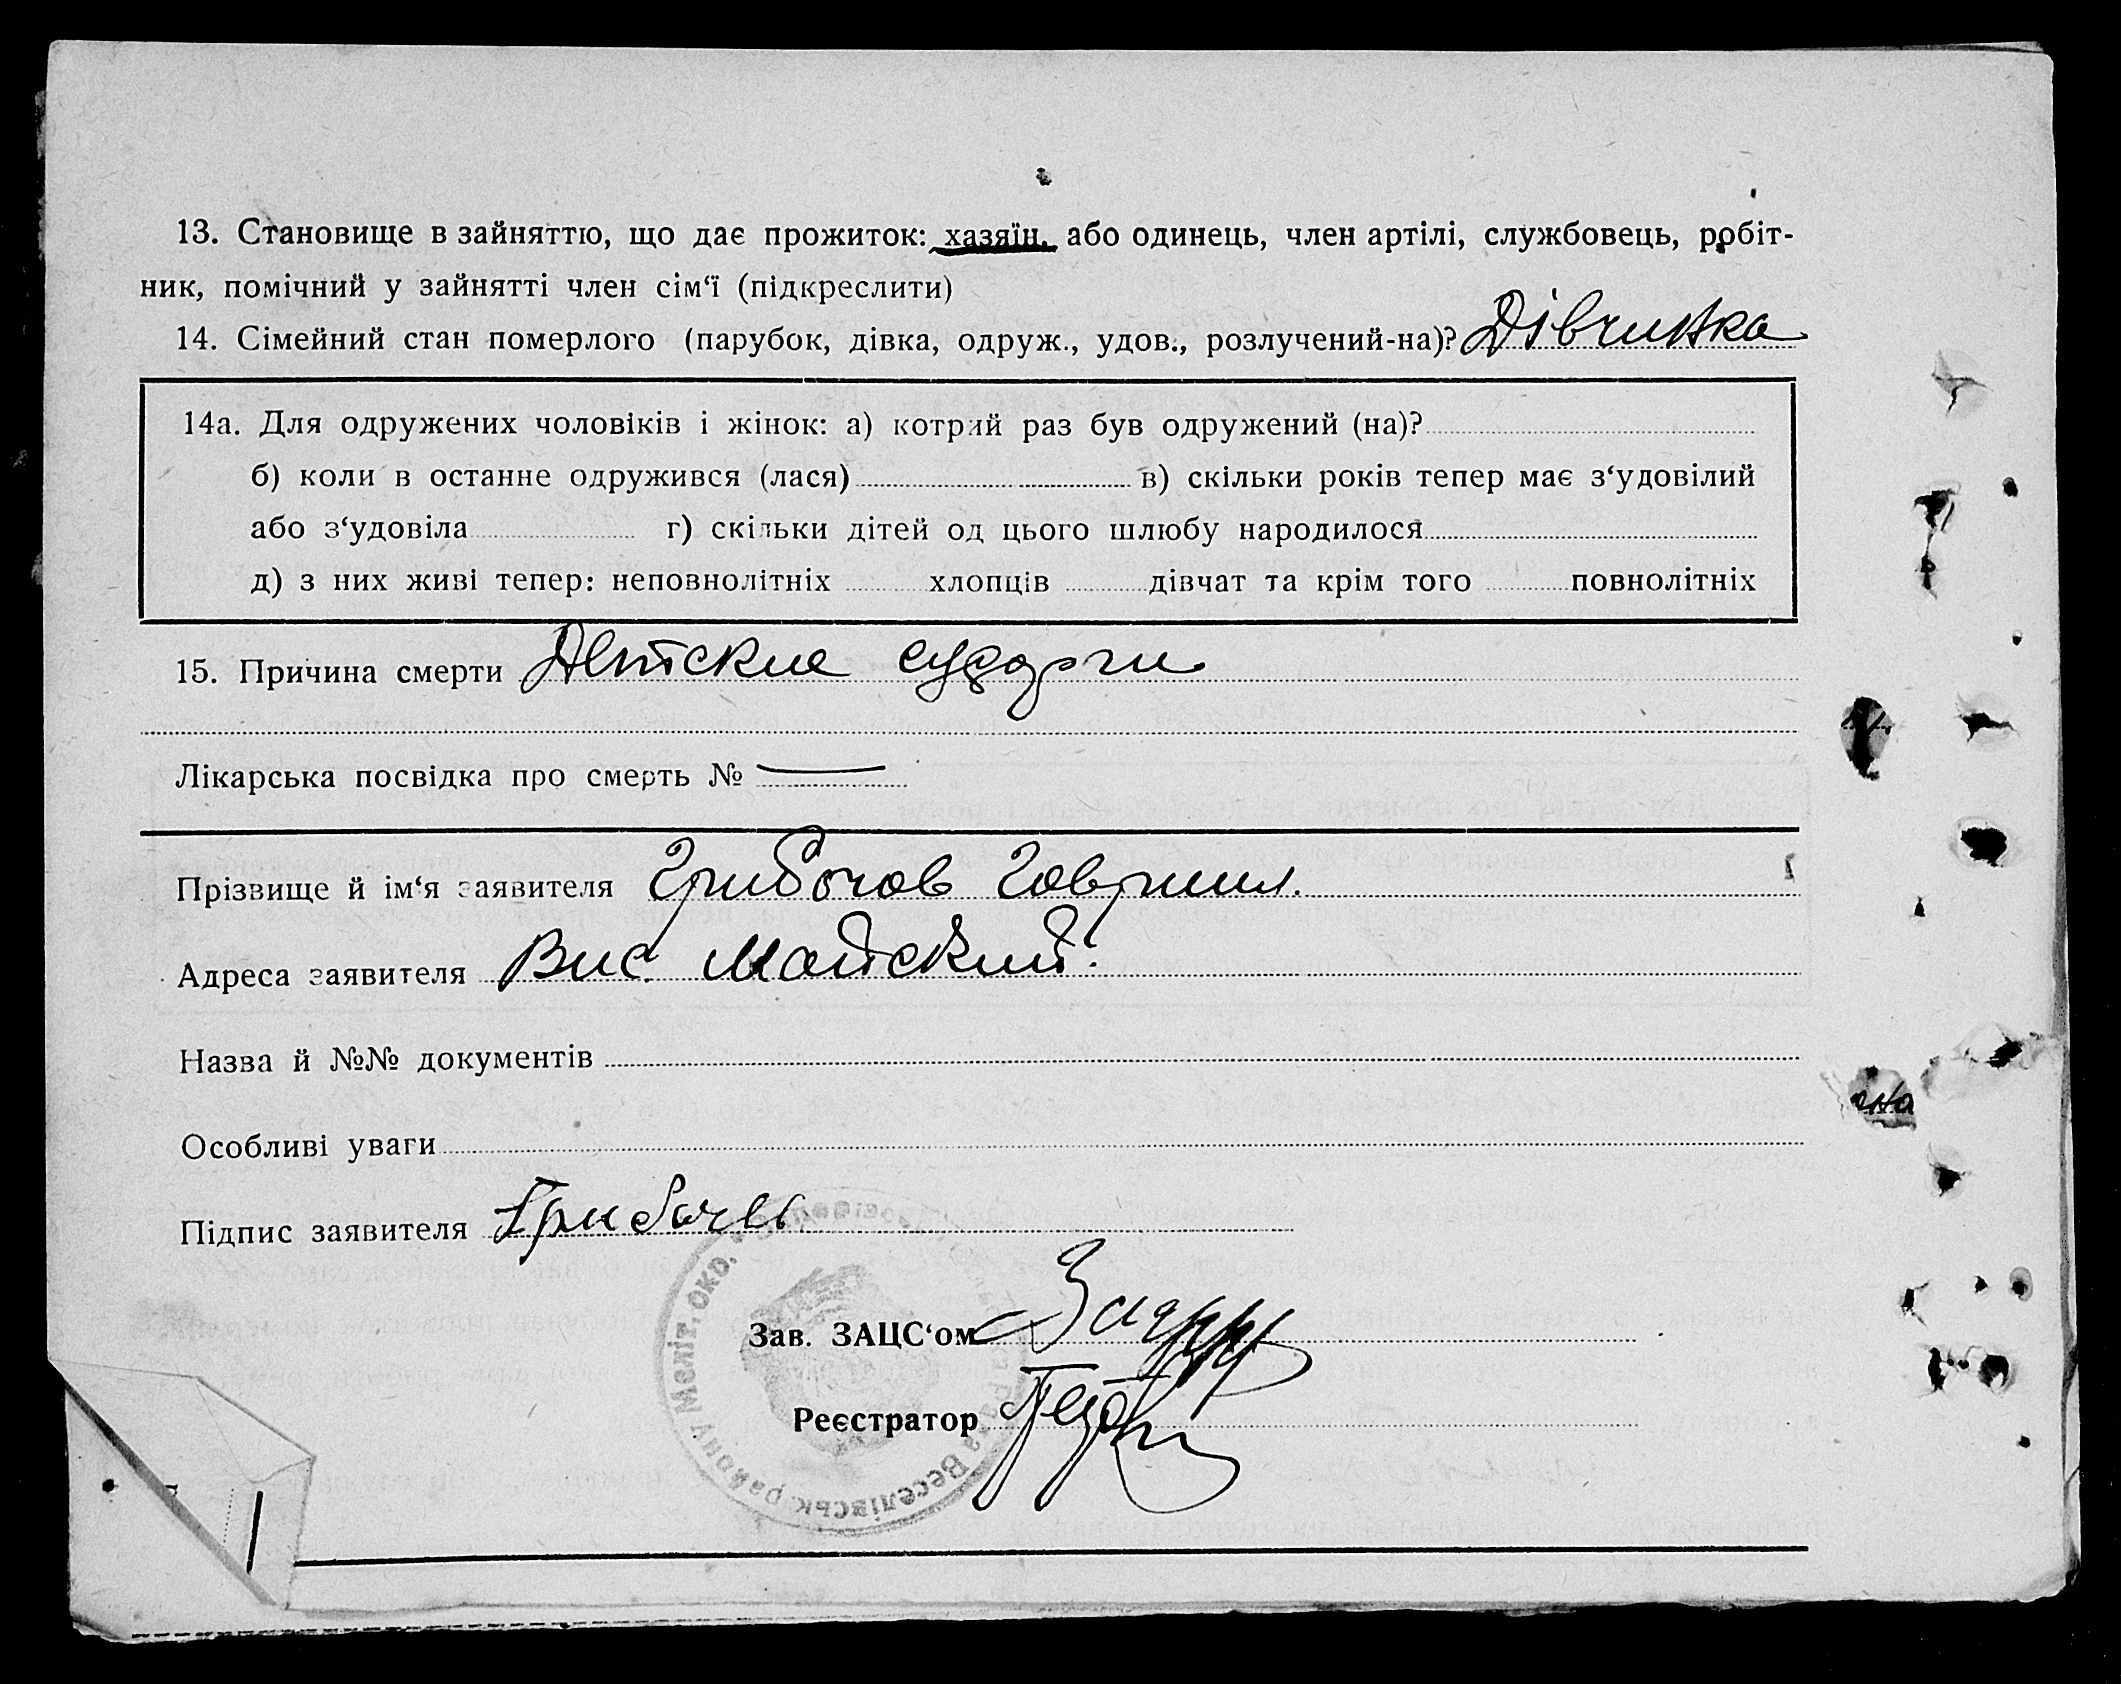 13. Становище в зайняттю, що дає прожиток: хазяїн, або одинець, член артілі, службовець, робіт-
ник, помічний у зайнятті член сім‘ї (підкреслити)
14. Сімейний стан померлого (парубок, дівка, одруж., удов., розлучений-на)? Дівчинка
14а. Для одружених чоловіків і жінок: а) котрий раз був одружений (на)?
б) коли в останне одружився (лася) в) скільки років тепер має з‘удовілий
або з‘удовіла г) скільки дітей од цього шлюбу народилося
д) з них живі тепер: неповнолітніх хлопців дівчат та крім того повнолітніх
15. Причина смерти Детские судороги
Лікарська посвідка про смерть № —
Прізвище й ім‘я заявителя Грибочов Гавриил.
Адреса заявителя Вис. Майский.
Назва й №№ документів
Особливі уваги
Підпис заявителя
Зав. ЗАЦС‘ом
Реєстратор
Веселівськ. району Меліт. окр.